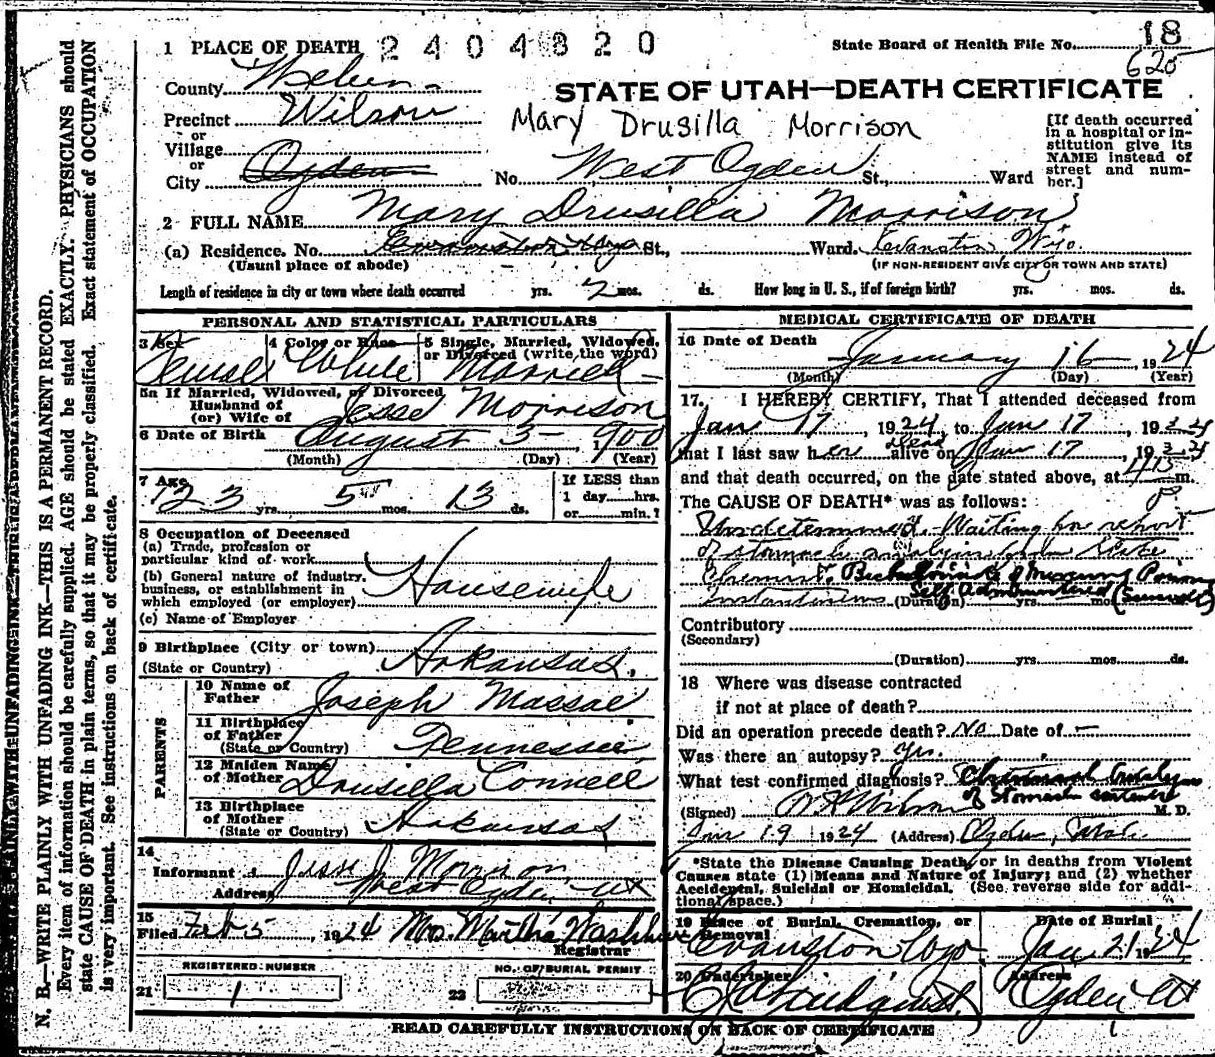 1 PLACE OF DEATH 2404820
State Board of Health File No. 18
625
County Weber
STATE OF UTAH—DEATH CERTIFICATE
Precinct Wilson
Mary Drusilla Morrison
or
Village
or
City Ogden No. West Ogden St., Ward
[If death occurred
in a hospital or in-
stitution give its
NAME instead of
street and num-
ber.]
2 FULL NAME Mary Drusilla Morrison
(a) Residence. No. Evanston Wyo St., Ward. Evanston Wyo.
(Usual place of abode) (IF NON-RESIDENT GIVE CITY OR TOWN AND STATE)
Length of residence in city or town where death occurred yrs. 2 mos. ds. How long in U. S., if of foreign birth? yrs. mos. ds.
PERSONAL AND STATISTICAL PARTICULARS
3 Sex 4 Color or Race 5 Single, Married, Widowed,
or Divorced (write the word)
Female White Married
5a If Married, Widowed, or Divorced
Husband of
(or) Wife of Jesse Morrison
6 Date of Birth August 3 1900
(Month) (Day) (Year)
7 Age 23 yrs. 5 mos. 13 ds.
If LESS than
1 day hrs.
or min.?
8 Occupation of Deceased
(a) Trade, profession or
particular kind of work
(b) General nature of industry,
business, or establishment in
which employed (or employer) Housewife
(c) Name of Employer
9 Birthplace (City or town)
(State or Country) Arkansas,
PARENTS
10 Name of
Father Joseph Massae
11 Birthplace
of Father
(State or Country) Tennessee
12 Maiden Name
of Mother Drusilla Connell
13 Birthplace
of Mother
(State or Country) Arkansas
14
Informant Jesse J. Morrison
Address West Ogden Ut
15
Filed Feb 5, 1924 Mrs. Martha
Registrar
REGISTERED NUMBER NO. OF BURIAL PERMIT
21 1 22
MEDICAL CERTIFICATE OF DEATH
16 Date of Death January 16, 1924
(Month) (Day) (Year)
17. I HEREBY CERTIFY, That I attended deceased from
Jan 17, 1924, to Jan 17, 1924
that I last saw her dead alive on Jan 17, 1924
and that death occurred, on the date stated above, at m.
The CAUSE OF DEATH* was as follows:
Undetermined. Waiting for report
of stomach analysis from State
Chemist. Bichloride of Mercury Poisoning
Instantaneous (Duration) yrs. mos. Self Administered (Suicide)
Contributory
(Secondary)
(Duration) yrs. mos. ds.
18 Where was disease contracted
if not at place of death?
Did an operation precede death? No Date of —
Was there an autopsy? Yes.
What test confirmed diagnosis? Chemical Analysis
of Stomach contents
(Signed) M. D.
Jan 19 1924 (Address) Ogden, Utah.
*State the Disease Causing Death, or in deaths from Violent
Causes state (1) Means and Nature of Injury; and (2) whether
Accidental, Suicidal or Homicidal. (See reverse side for addi-
tional space.)
19 Place of Burial, Cremation, or
Removal Date of Burial
Evanston Wyo. Jan 21 1924
20 Undertaker Address
Ogden Ut
READ CAREFULLY INSTRUCTIONS ON BACK OF CERTIFICATE
N. B.—WRITE PLAINLY WITH UNFADING INK—THIS IS A PERMANENT RECORD.
Every item of information should be carefully supplied. AGE should be stated EXACTLY. PHYSICIANS should
state CAUSE OF DEATH in plain terms, so that it may be properly classified. Exact statement of OCCUPATION
is very important. See instructions on back of certificate.